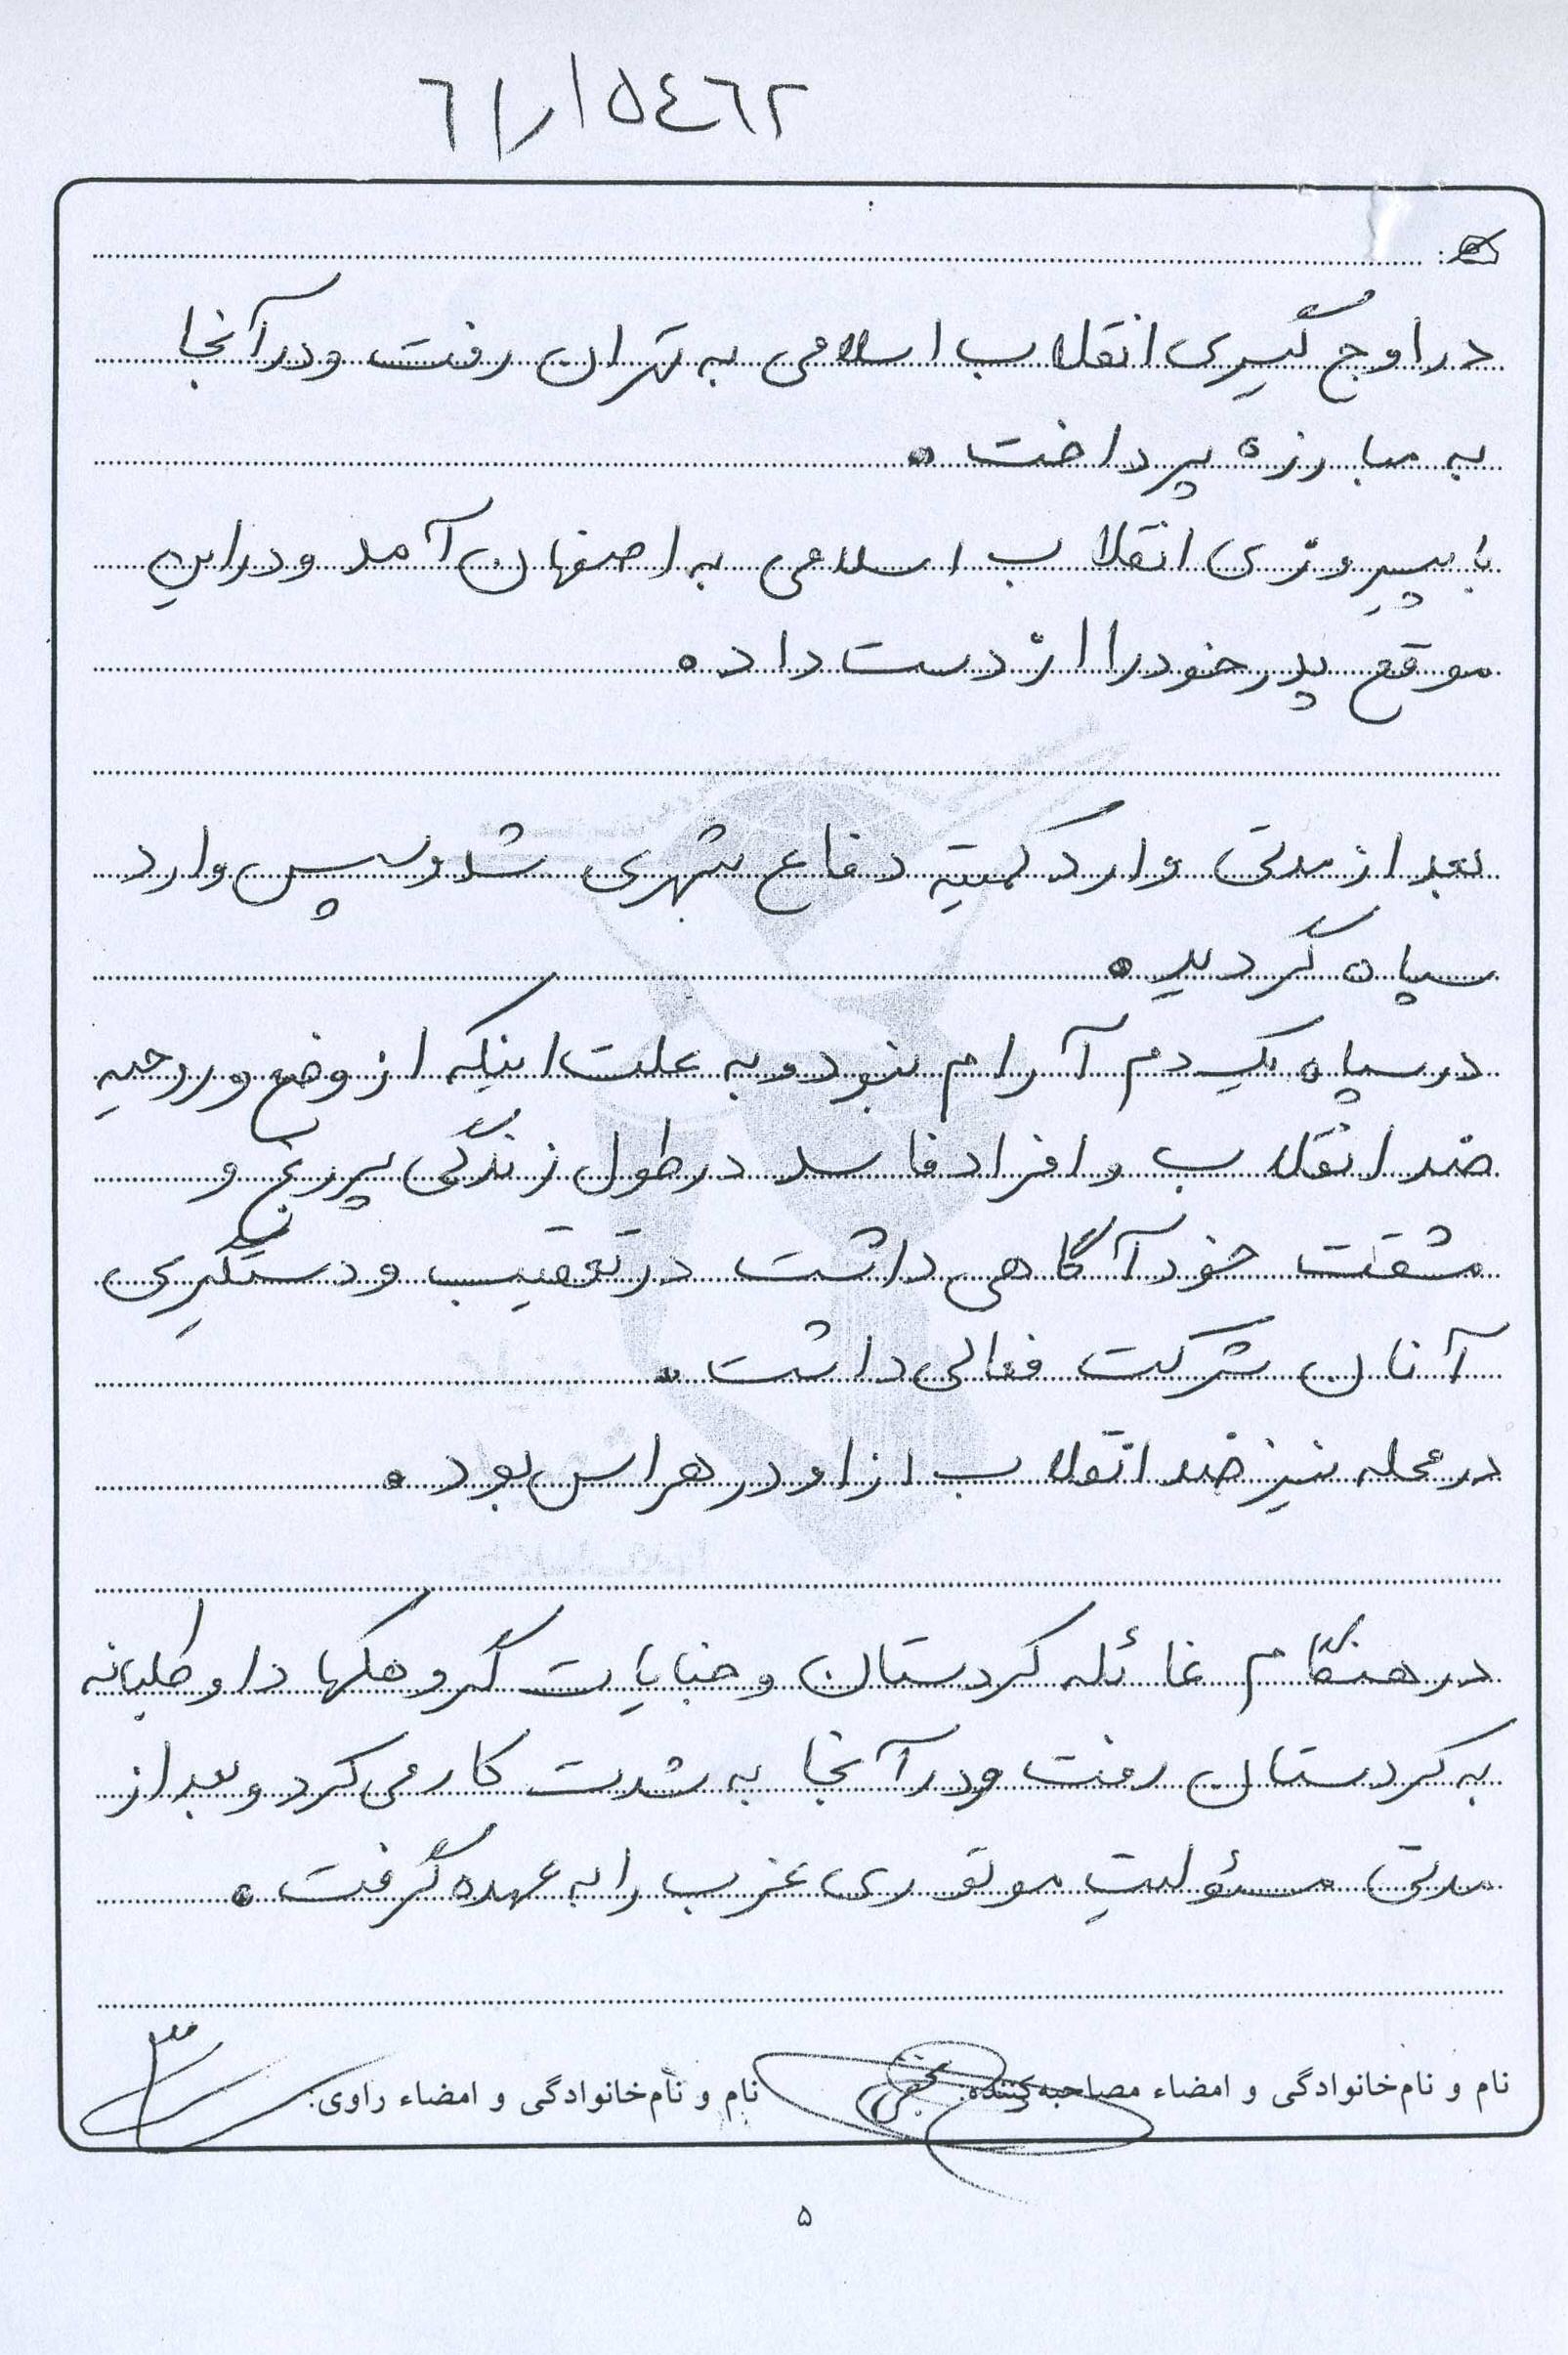 ۶/ر/۱۵۴۶۲
در اوج گیری انقلاب اسلامی به تهران رفت و در آنجا
به مبارزه پرداخت .
با پیروزی انقلاب اسلامی به اصفهان آمد و در این
موقع پدر خود را از دست داد .
بعد از مدتی وارد کمیته دفاع شهری شد و سپس وارد
سپاه گردید .
در سپاه یک دم آرام نبود و به علت اینکه از وضع و روحیه
ضد انقلاب و افراد فاسد در طول زندگی پر رنج و
مشقت خود آگاهی داشت در تعقیب و دستگیری
آنان شرکت فعالی داشت .
در محله نیز ضد انقلاب از او در هراس بود .
در هنگام غائله کردستان و جنایات گروهکها داوطلبانه
به کردستان رفت و در آنجا به شدت کار می کرد و بعد از
مدتی مسئولیت موتوری غرب را به عهده گرفت .
نام و نام‌خانوادگی و امضاء مصاحبه‌کننده: نام و نام‌خانوادگی و امضاء راوی:
۵